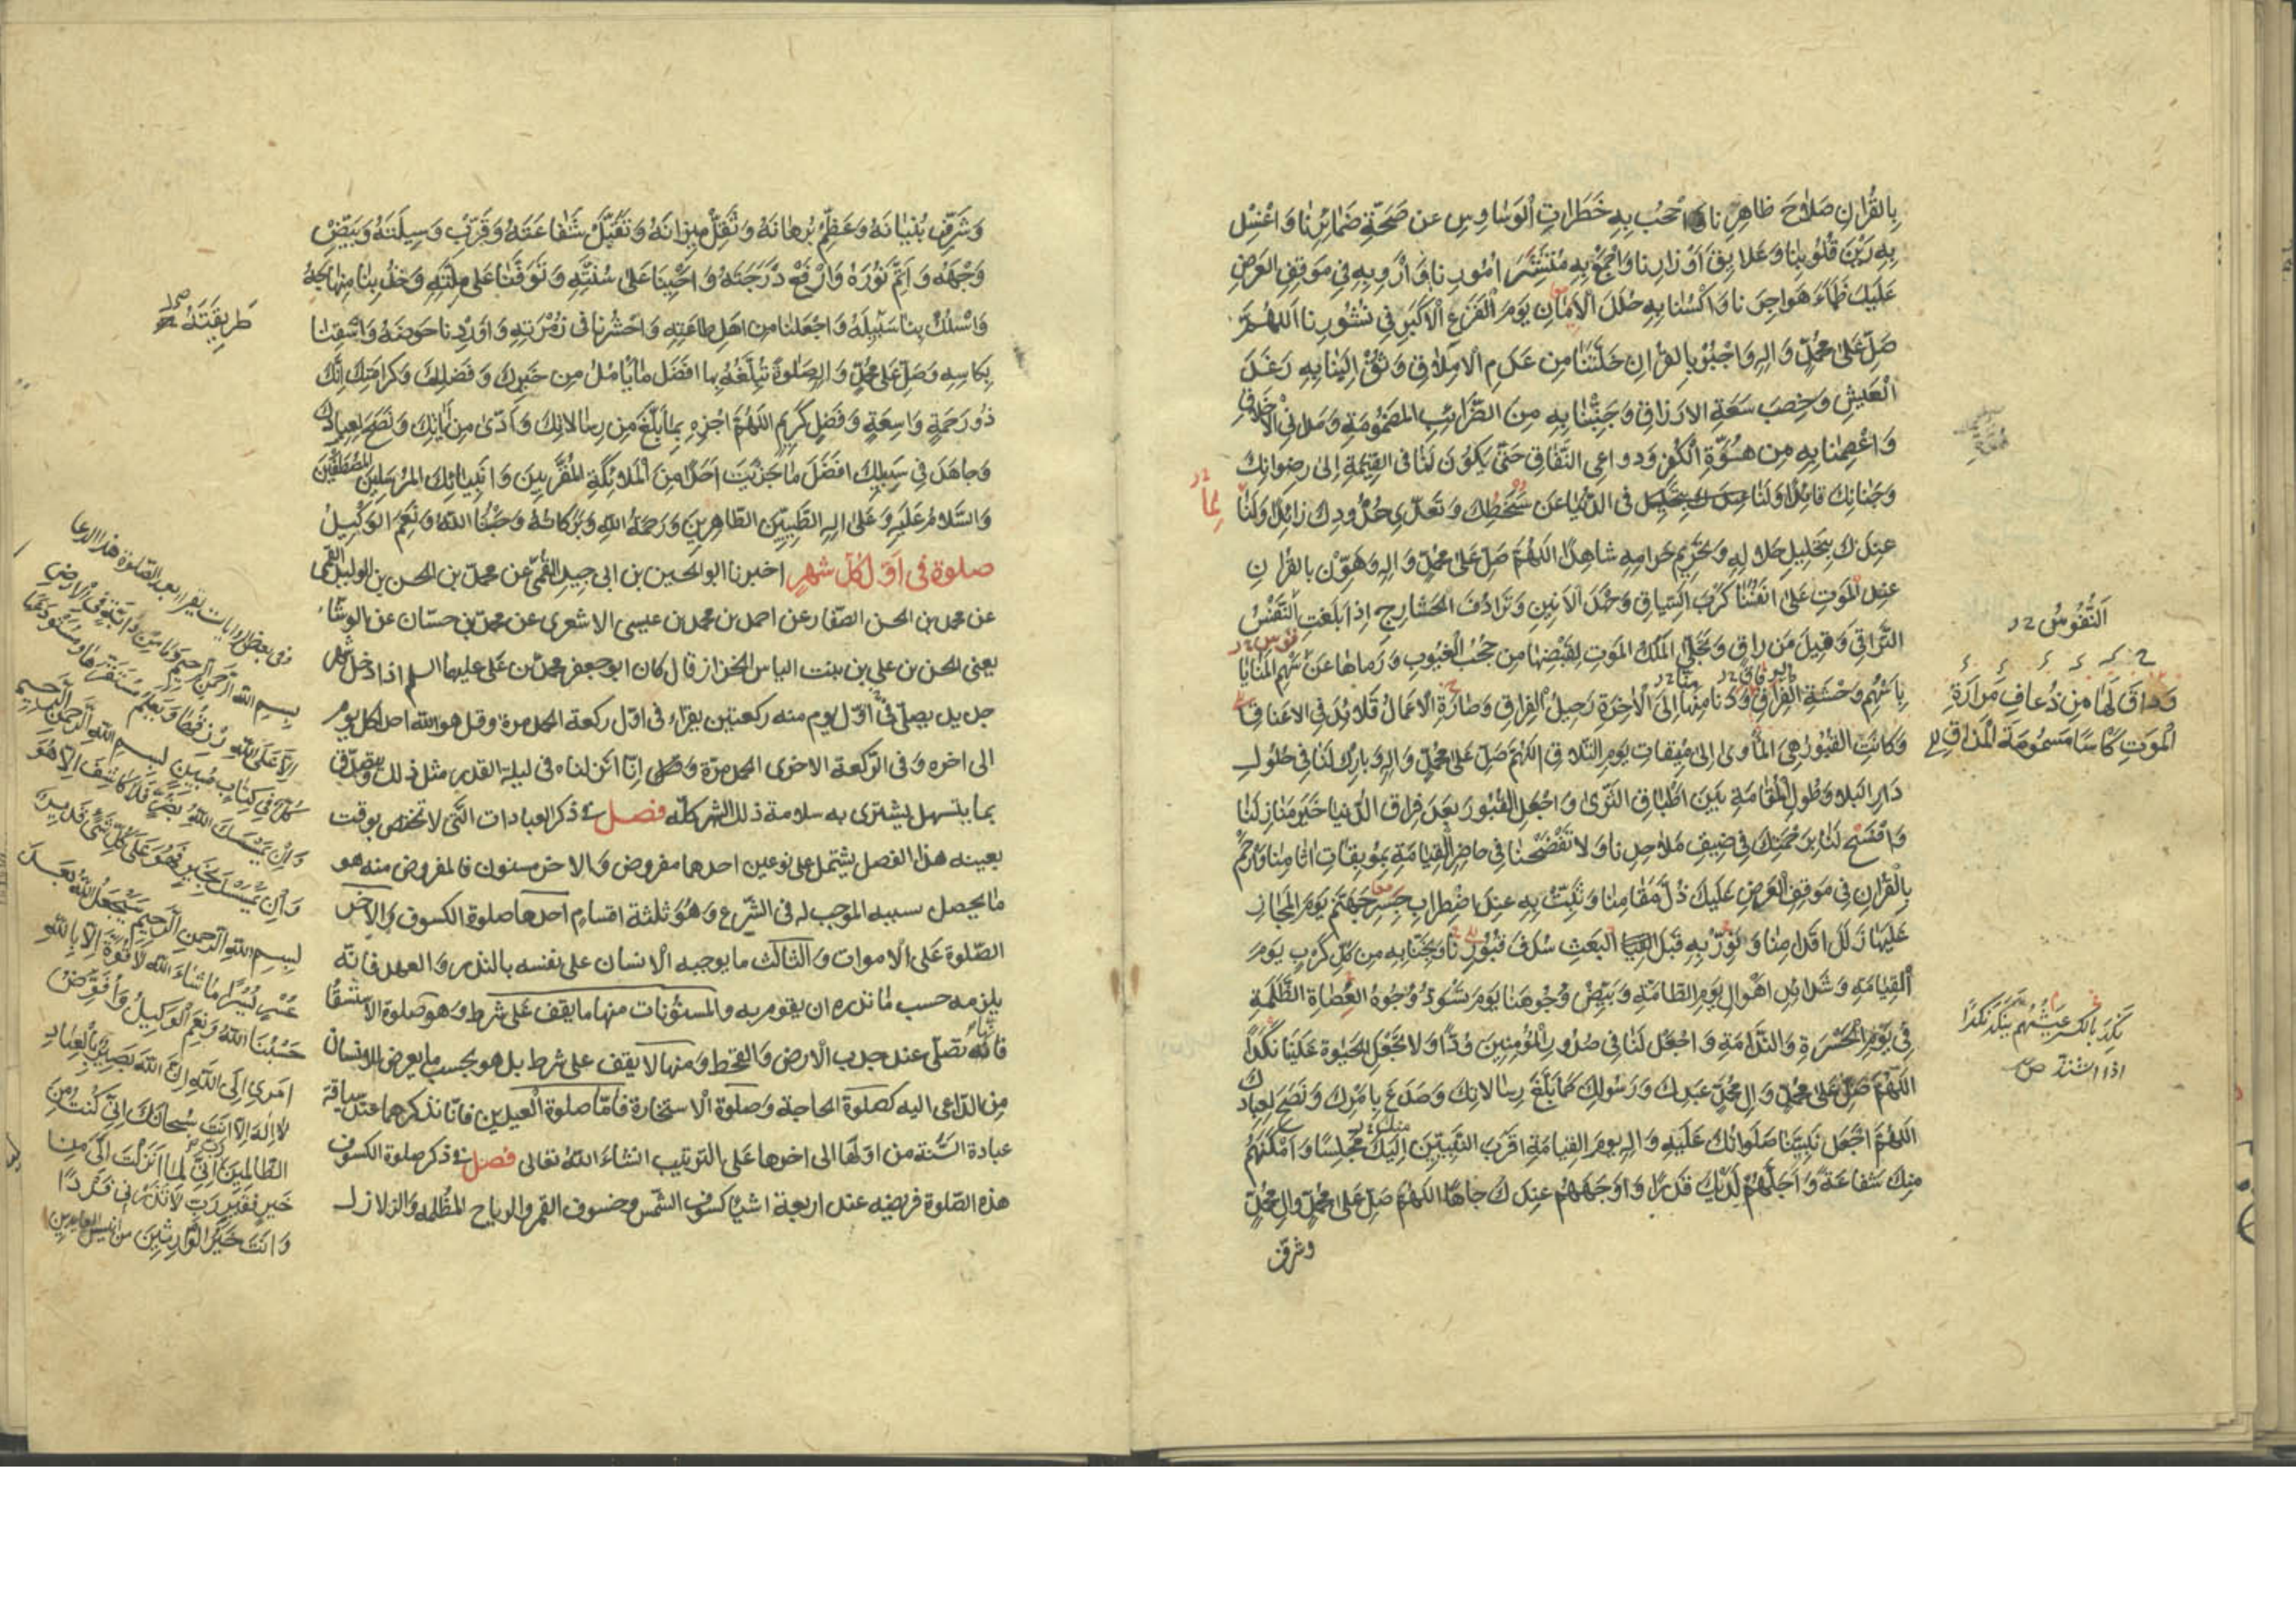 بِالقُرْانِ صَلاحَ ظاهِرِنا وَاحْجُبْ بِهِ خَطَراتِ الْوَساوِسِ عن صَحَّةِ ضَمائِرِنا وَاغْسِلْ
بِهِ رَيْنَ قُلُوبِنا وَعَلايِقَ اَوْزارِنا وَاجْمَعْ بِهِ مُنْتَشَرَ اُمُورِنا وَارْوِ بِهِ فى مَوقِفِ العَرضِ
عَلَيكَ ظَمَأَ هَواجِرِنا وَاكْسُنا بِهِ حُلَلَ الْاَمانِ يَومَ الْفَزَعِ الْاَكْبَرِ فى نُشُورِنا اَللّهُمَّ
صَلِّ عَلى مُحَمَّدٍ وَالِهِ وَاجْبُرْ بِالقرْانِ خَلَّتَنا مِن عَدَمِ الاِملاقِ وَسُقْ اِلَينا بِهِ رَغَدَ
الْعَيشِ وَخِصبَ سَعَةِ الاَرزاقِ وَجَنِّبْنا بِهِ مِنَ الضَّرائِبِ المَذمُومَةِ وَمَدانِى الْاَخلاقِ
وَاعْصِمْنا بِهِ مِن هُوَّةِ الْكُفرِ وَدواعِى النِّفاقِ حَتّى يَكُونَ لَنا فى القِيٰمَةِ اِلى رِضوانِكَ
وَجِنانِكَ قائِدًا وَلَنا فى الدُّنيا عَن سَخَطِكَ وَتَعَدِّى حُدُودِكَ ذائِدًا وَلَنا
لِما
عِندَكَ بِتَحليلِ حَلالِهِ وَتَحْرِيمِ حَرامِهِ شاهِدًا اَللّهُمَّ صَلِّ عَلى مُحَمَّدٍ وَالِهِ وَهَوِّنْ بالقُرْانِ
عِندَ المَوتِ عَلى اَنفُسِنا كَرْبَ السِّياقِ وَجَهْدَ الْاَنينِ وَتَرادُفَ الحَشارِجِ اِذا بَلَغَتِ النَّفْسُ
اَلنُّفُوسُ
التَّراقِىَ وَقيلَ مَن راقٍ وَتَجَلّى المَلَكُ المَوتِ لِقَبْضِها مِن حُجُبِ الْغُيُوبِ وَرَماها عَن سَهمِ المَنايا
بِاَسْهُمِ وَحْشَةِ الفِراقِ وَدَنا مِنها اِلَى الْاخِرَةِ رَحيلُ الْفِراقِ وَصارَتِ الْاَعمالُ قَلائِدَ فى الاَعناقِ
وَدافَ لَها مِن ذُعافِ مَرارَةِ
الْمَوتِ كَاْسًا مَسمُومَةَ الْمَذاقِ
وَكانَتِ القُبُورُ هِىَ المَاْوى اِلى مِيقاتِ يَومِ التَّلاقِ اَللّهُمَّ صَلِّ عَلى مُحَمَّدٍ وَالِهِ وَبارِك لَنا فى حُلُولِ
دَارِ البَلاءِ وَطُولِ المُقامَةِ بَينَ اَطْباقِ الثَّرى وَاجْعَلِ القُبُورَ بَعدَ فِراقِ الدُّنيا خَيرَ مَنازِلِنا
وَافْسَحْ لَنا بِرَحْمَتِكَ فى ضيقِ مَلاحِدِنا وَلا تَفْضَحْنا فى حاضِرِ القِيامَةِ بِمُوبِقاتِ اثامِنا وَارْحَمْ
بِالْقُرْانِ فى مَوقِفِ الْعَرضِ عَلَيكَ ذُلَّ مَقامِنا وَثَبِّتْ بِهِ عِندَ اضْطِرابِ جِسرِ جَهَنَّمَ يَومَ المَجازِ
عَلَيها زَلَلَ اَقدامِنا وَنَوِّرْ بِهِ قَبلَ البَعثِ سُدَفَ قُبُورِنا وَنَجِّنا بِهِ مِن كُلِّ كَرْبٍ يَومَ
الْقِيامَةِ وَشَدائِدِ اَهْوالِ يَومِ الطّامَّةِ وَبَيِّضْ وُجُوهَنا يَومَ تَسْوَدُّ وُجُوهُ العُصاةِ الظَّلَمَةِ
فى يَومِ الْحَسْرَةِ وَالنَّدامَةِ وَاجْعَلْ لَنا فى صُدُورِ الْمُؤْمِنينَ وُدًّا وَلا تَجْعَلِ الحَيٰوةَ عَلَينا نَكَدًا
نَكِدَ بالكسر عَيشُهُم يَنكَدُ نَكَدًا
اذا اشتدّ ص
اَللّهُمَّ صَلِّ عَلى مُحَمَّدٍ وَالِ مُحَمَّدٍ عَبدِكَ وَرَسُولِكَ كَما بَلَّغَ رِسالاتِكَ وَصَدَعَ بِاَمرِكَ وَنَصَحَ لِعِبادِكَ
اَللّهُمَّ اجْعَل نَبِيَّنا صَلَواتُكَ عَلَيهِ وَالِهِ يومَ القِيامَةِ اَقرَبَ النَّبِيّينَ اِلَيكَ مَجلِسًا وَاَمْكَنَهُم
مِنكَ شَفاعَةً وَاَجَلَّهُم لَدَيكَ قَدْرًا وَاَوجَهَهُم عِندَكَ جاهًا اللّهُمَّ صَلِّ عَلى مُحَمَّدٍ وَالِ مُحَمَّدٍ
وشرّف
وَشَرِّف بُنْيانَهُ وَعَظِّم بُرهانَهُ وَثَقِّل ميزانَهُ وَتَقَبَّل شَفاعَتَهُ وَقَرِّب وَسيلَتَهُ وَبَيِّضْ
وَجْهَهُ وَاَتِمَّ نُورَهُ وَارْفَعْ دَرَجَتَهُ وَاَحْيِنا عَلى سُنَّتِهِ وَتَوَفَّنا عَلى مِلَّتِهِ وَخُذْ بِنا مِنهاجَهُ
طَرِيقَتَهُ
وَاسْلُك بِنا سَبيلَهُ وَاجْعَلنا مِن اَهلِ طاعَتِهِ وَاحْشُرنا فى زُمْرَتِهِ وَاَورِدنا حَوضَهُ وَاسْقِنا
بِكاسِهِ وَصَلِّ عَلى مُحَمَّدٍ وَالِهِ صَلٰوةً تُبَلِّغُهُ بِها اَفضَلَ ما يَاْمُلُ مِن خَيرِكَ وَفَضلِكَ وَكَرامَتِكَ اِنَّكَ
ذُو رَحمَةٍ واسِعَةٍ وَفَضلٍ كَريمٍ اللّهُمَّ اجْزِهِ بِما بَلَّغَ مِن رِسالاتِكَ وَاَدّى مِن اياتِكَ وَنَصَحَ لِعِبادِكَ
وَجاهَدَ فى سَبيلِكَ اَفضَلَ ما جَزَيتَ اَحَدًا مِنَ الْمَلائِكَةِ المُقَرَّبينَ وَاَنبِيائِكَ المُرسَلينَ المُصْطَفَيْنَ
وَالسَّلامُ عَلَيهِ وَعَلى الِهِ الطَّيِّبينَ الطّاهِرينَ وَرَحمَةُ اللهِ وَبَرَكاتُهُ وَحَسْبُنَا اللهُ وَنِعمَ الوَكيلُ
صلوة فى اوّل كلّ شهر اخبرنا ابو الحسين بن ابى جيد القمىّ عن محمّد بن الحسن بن الوليد القمى
عن محمد بن الحسن الصفّار عن احمد بن محمد بن عيسى الاشعرى عن محمد بن حسّان عن الوشّاء
يعنى الحسن بن على بن بنت الياس الخزاز قال كان ابو جعفر محمد بن على عليهما السلم اذا دخل شهر
جديد يصلّى فى اوّل يوم منه ركعتين يقراء فى اوّل ركعة الحمد مرة وقل هو الله احد لكل يوم
الى اخره وفى الرّكعة الاخرى الحمد مرّة و انّا انزلناه فى ليلة القدر مثل ذلك ويتصدّق
بما يتسهل يشترى به سلامة ذلك الشهر كلّه فصل فى ذكر العبادات التى لا تختص بوقت
بعينه هذا الفصل يشتمل على نوعين احدهما مفروض والاخر مسنون فالمفروض منه هو
ما يحصل سببه الموجب له فى الشّرع وهو ثلثة اقسام احدها صلوة الكسوف والاخر
الصّلوة على الاموات والثالث ما يوجبه الانسان على نفسه بالنذر والعهد فانه
يلزمه حسب ما نذره ان يقوم به والمسنونات منها ما يقف على شرط وهو صلوة الاستسقاء
فانّه تصلّى عند جدب الارض والقحط ومنها لا يقف على شرط بل هو بحسب ما يعرض للانسان
من الدّاعى اليه كصلوة الحاجة وصلوة الاستخارة فامّا صلوة العيدين فانّا نذكرهما عند سياقة
عبادة السّنة من اوّلها الى اخرها على الترتيب انشاء الله تعالى فصل فى ذكر صلوة الكسوف
هذه الصّلوة فريضه عند اربعة اشياء كسوف الشّمس وخسوف القمر والرياح المظلمه والزلازل
وفى بعض الروايات يقراء بعد الصّلوة هذا الدعا
بِسمِ اللهِ الرَّحمنِ الرَّحيمِ وَما مِن دابَّةٍ فى الاَرضِ
اِلّا عَلَى اللهِ رِزقُها وَيَعلَمُ مُستَقَرَّها ومُستَودَعَها
كُلٌّ فى كِتابٍ مُبينٍ بِسمِ اللهِ الرَّحمنِ الرَّحيمِ
وَاِن يَمسَسْكَ اللهُ بِضُرٍّ فَلا كاشِفَ اِلّا هُوَ
وَاِن يَمسَسْكَ بِخَيرٍ فَهُوَ عَلى كُلِّ شَىءٍ قَديرٌ
بِسمِ اللهِ الرَّحمنِ الرَّحيمِ سَيَجْعَلُ اللهُ بَعدَ
عُسْرٍ يُسْرًا ما شاءَ اللهُ لا قُوَّةَ اِلّا بِاللهِ
حَسْبُنَا اللهُ وَنِعمَ الْوَكيلُ وَاُفَوِّضُ
اَمرى اِلَى اللهِ اِنَّ اللهَ بَصيرٌ بِالْعِبادِ
لا اِلهَ اِلّا اَنتَ سُبحانَكَ اِنّى كُنتُ مِنَ
الظّالِمينَ رَبِّ اِنّى لِما اَنْزَلْتَ اِلَىَّ مِن
خَيرٍ فَقيرٌ رَبِّ لا تَذَرْنى فَردًا
وَاَنتَ خَيرُ الْوارِثينَ